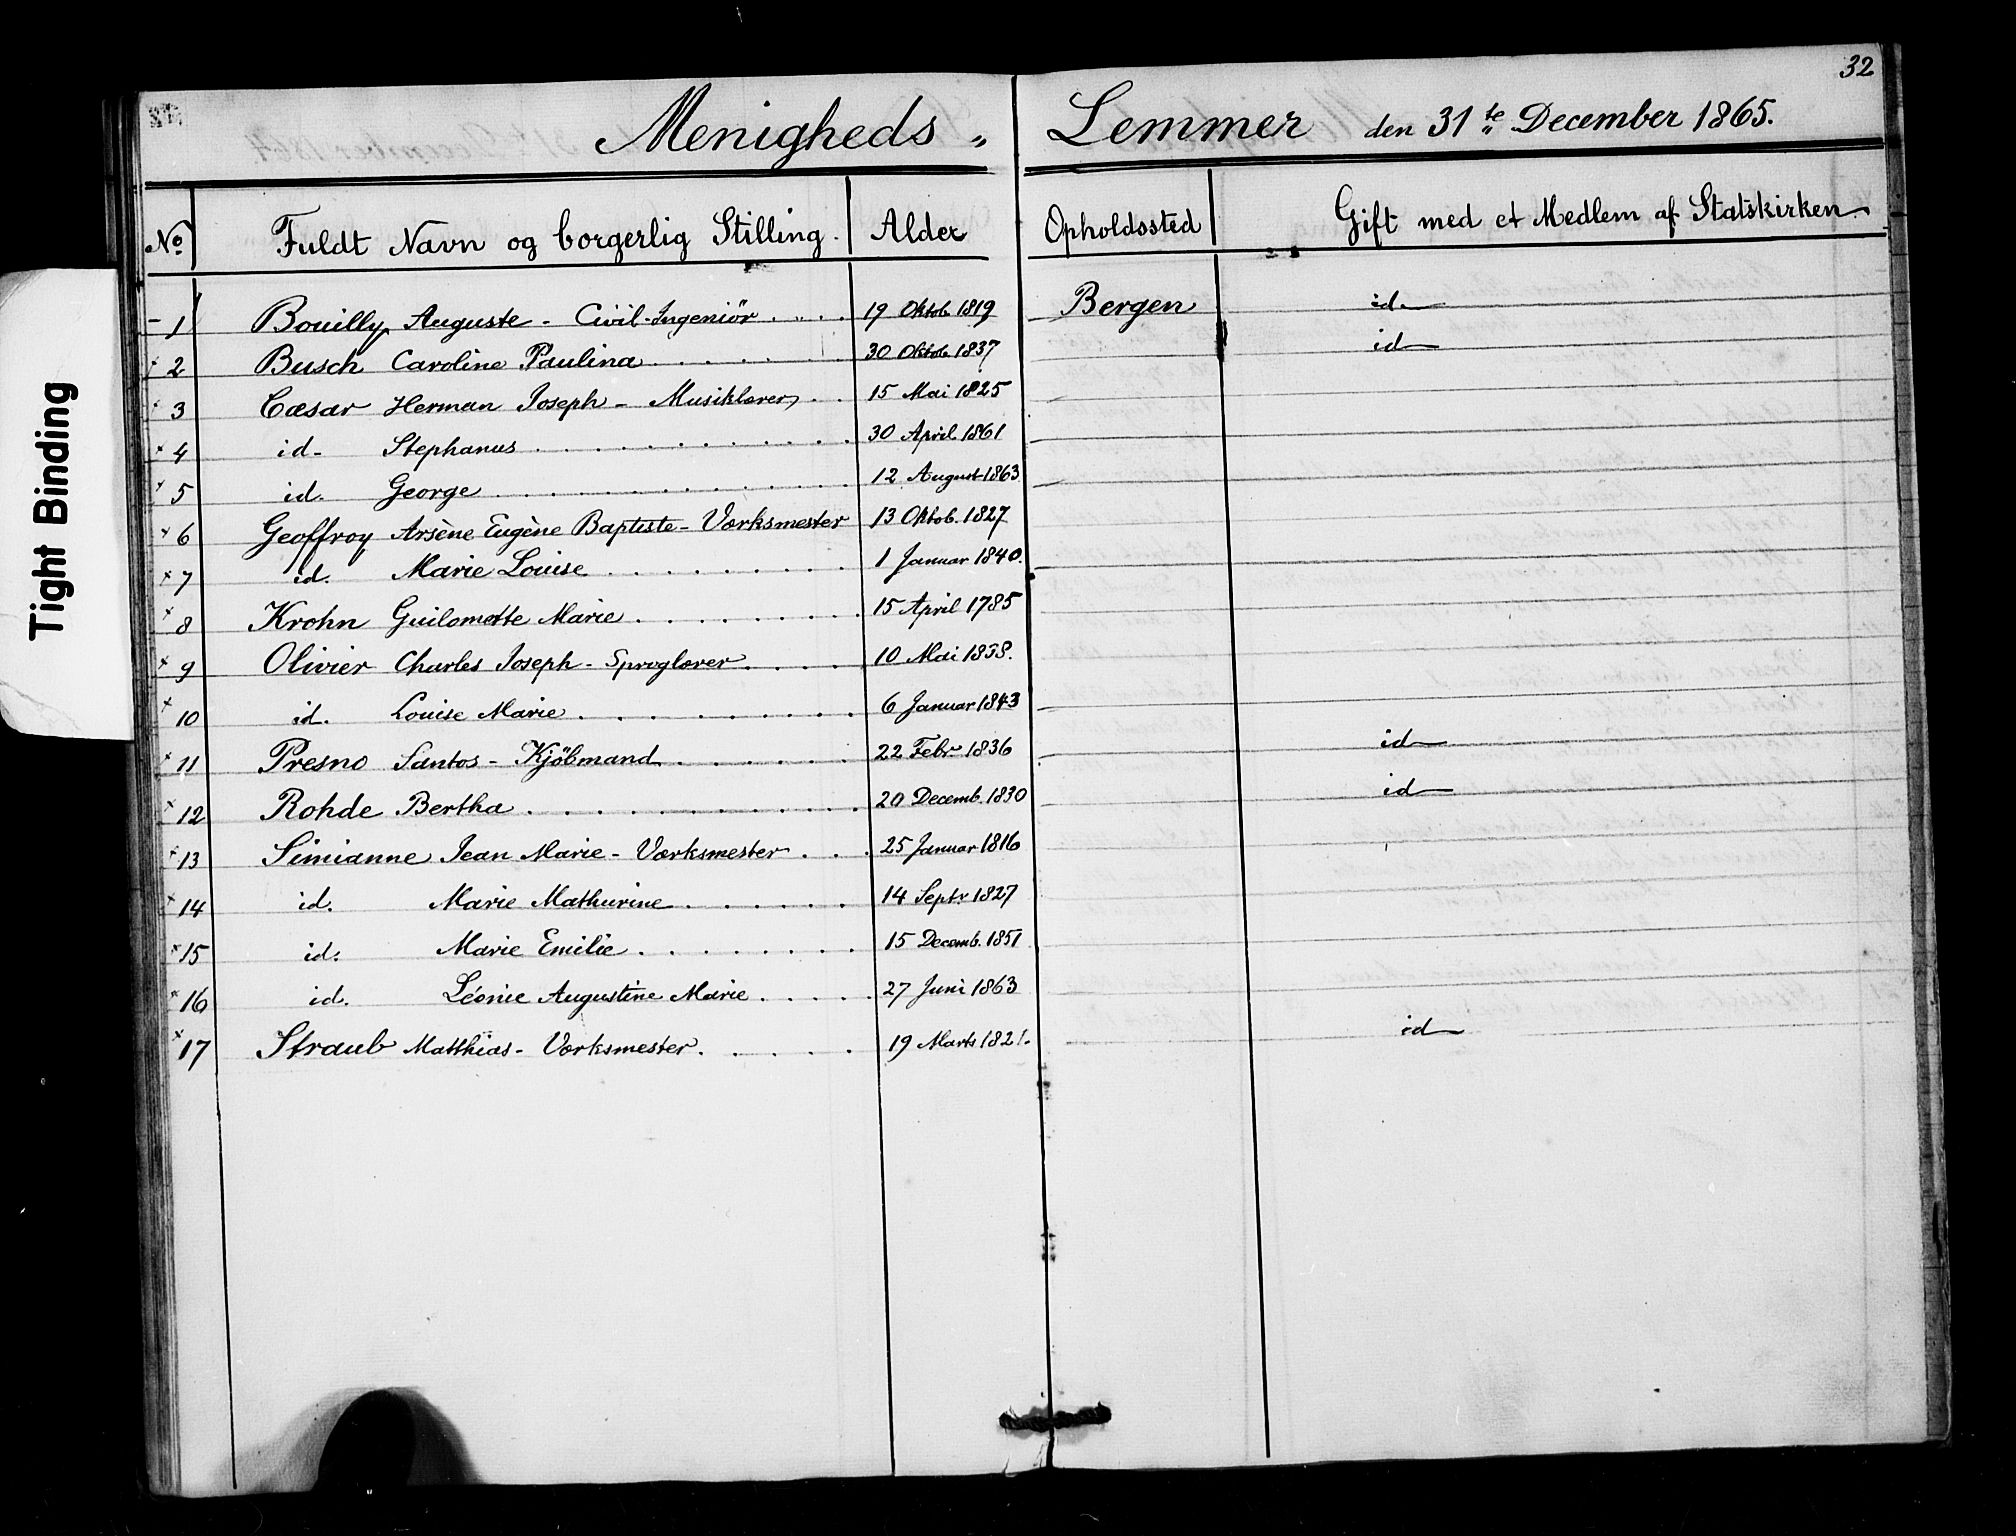 32
Menigheds- Lemmer den 31te December 1865.
No Fuldt Navn og borgerlig Stilling. Alder Opholdssted Gift med et Medlem af Statskirken
1 Bouilly Auguste - Civil-Ingeniör . . . . 19 Oktob. 1819 Bergen id.
2 Busch Caroline Paulina . . . . . . 30 Oktob. 1837 id
3 Cæsar Herman Joseph - Musiklærer . . 15 Mai 1825
4 id. Stephanus . . . . . . . . . . 30 April 1861
5 id. George . . . . . . . . . . . 12 August 1863
6 Geoffroy Arsène Eugène Baptiste - Værksmester 13 Oktob. 1827
7 id. Marie Louise . . . . . . . . 1 Januar 1840.
8 Krohn Guilomette Marie . . . . . . . 15 April 1785
9 Olivier Charles Joseph - Sproglærer . . . . 10 Mai 1838.
10 id. Louise Marie . . . . . . . . 6 Januar 1843
11 Presno Santos - Kjöbmand . . . . . . 22 Febr. 1836 id
12 Rohde Bertha . . . . . . . . . . 20 Decemb. 1830 id
13 Simianne Jean Marie - Værksmester . . . 25 Januar 1816
14 id. Marie Mathurine . . . . . . 14 Septr. 1827
15 id. Marie Emilie . . . . . . . 15 Decemb. 1851
16 id. Léonie Augustine Marie . . . . . 27 Juni 1863
17 Straub Matthias - Værksmester . . . . . 19 Marts 1821. id
Tight Binding